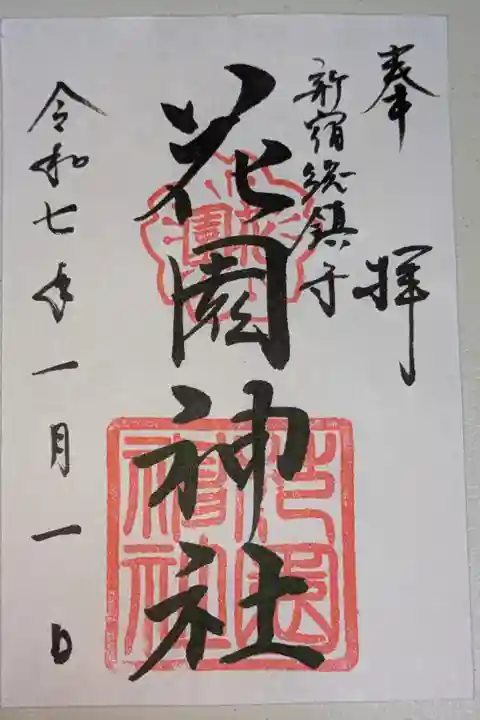 奉拝
新宿総鎮守
花園神社
花園
花園神社
令和七年一月一日